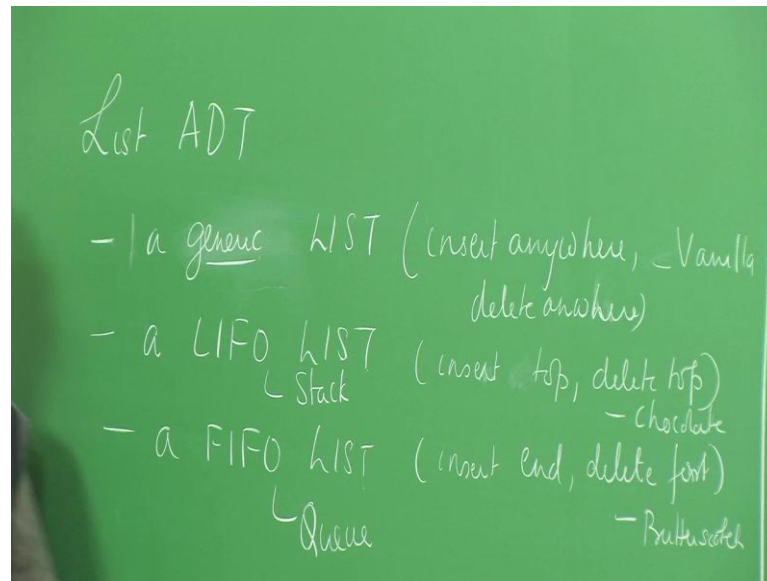 List ADT
- a generic LIST (insert anywhere, - Vanilla
delete anwhere)
- a LIFO LIST (insert top, delete top)
Stack - Chocolate
- a FIFO LIST (insert end, delete first)
Queue - Butterscotch